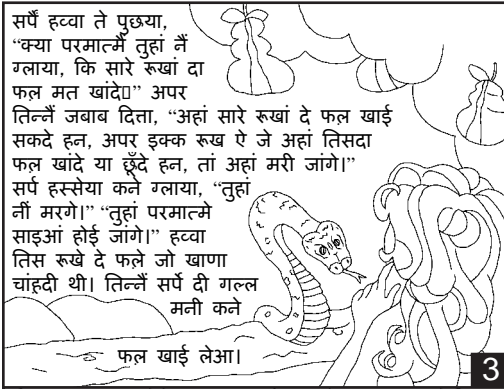 सर्पैं हव्वा ते पुछया,
“क्या परमात्मैं तुहां नैं
ग्लाया, कि सारे रूखां दा
फल़ मत खांदे” अपर
तिन्नैं जबाब दित्ता, “अहां सारे रूखां दे फल़ खाई
सकदे हन, अपर इक्क रूख ऐ जे अहां तिसदा
फल़ खांदे या छूँदे हन, तां अहां मरी जांगे।”
सर्प हस्सेया कने ग्लाया, “तुहां
नीं मरगे।” “तुहां परमात्मे
साइआं होई जांगे।” हव्वा
तिस रूखे दे फल़े जो खाणा
चांहदी थी। तिन्नैं सर्पे दी गल्ल
मनी कने
फल़ खाई लेआ।
3